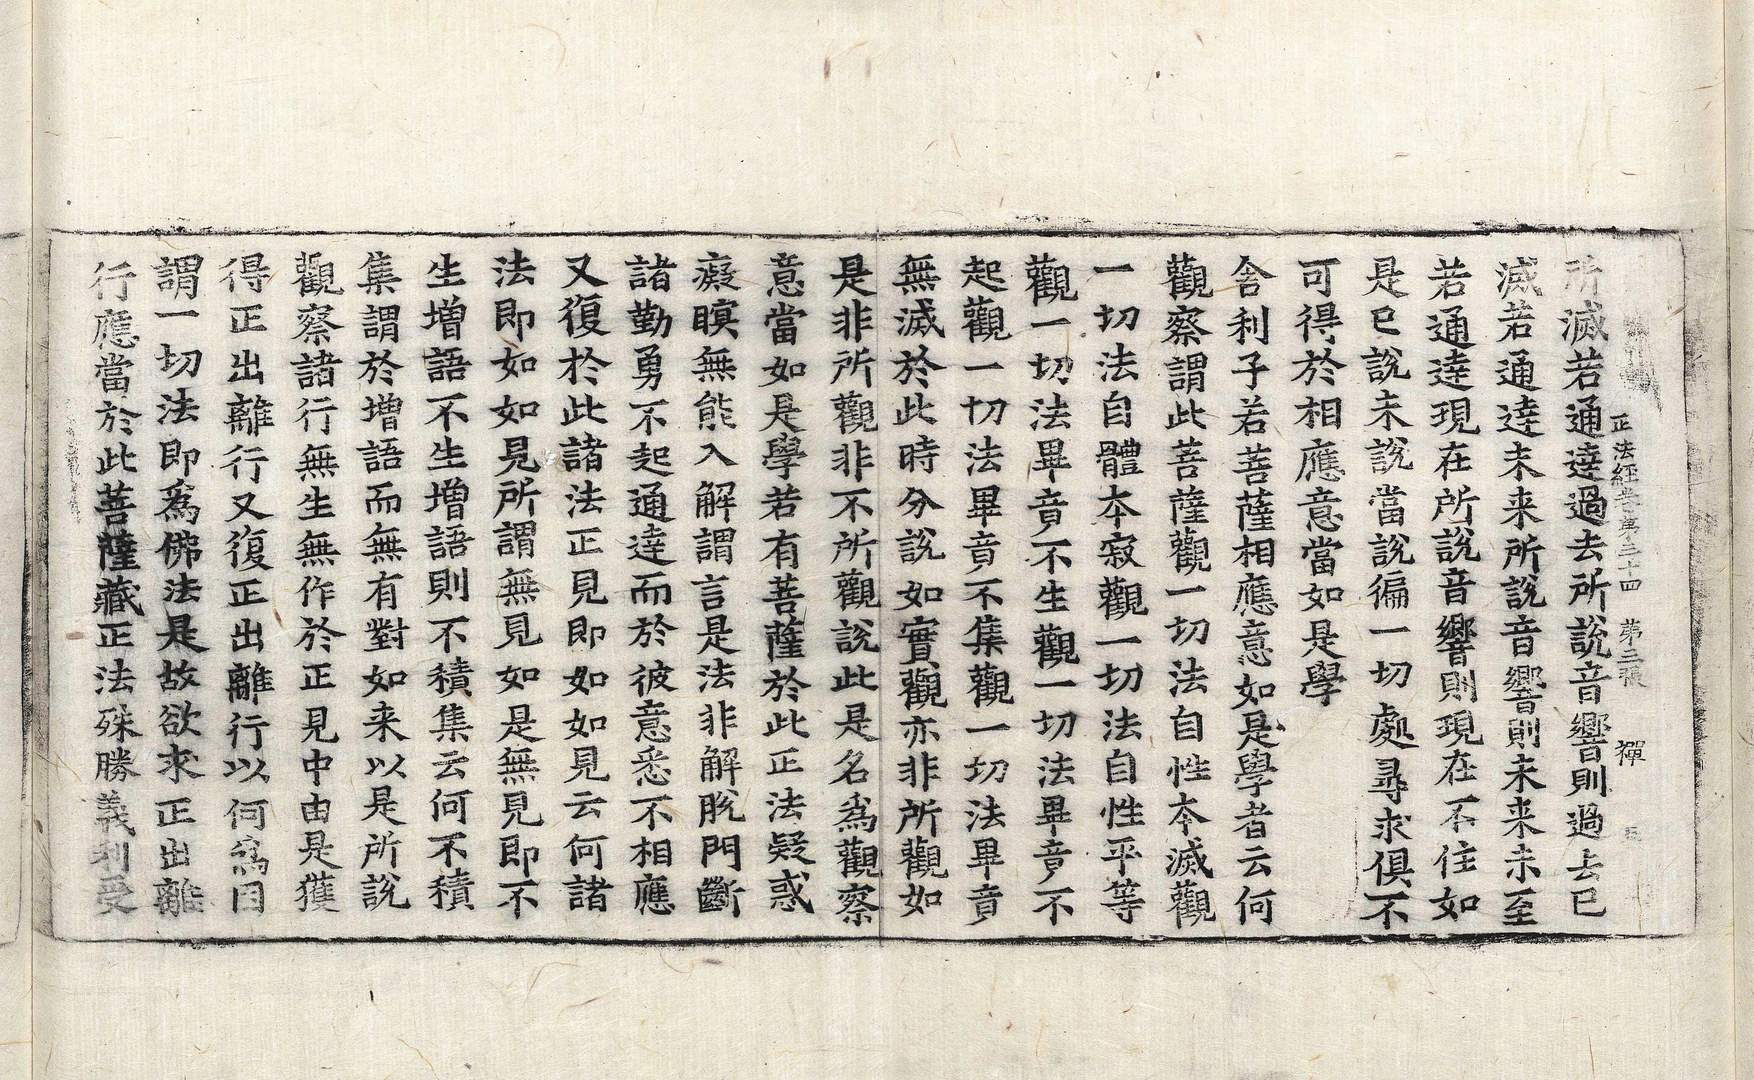 正法經卷第三十四　第三張　禪
所滅若通達過去所說音響則過去已
滅若通達未来所說音響則未来未至
若通達現在所說音響則現在不住如
是已說未說當說徧一切處尋求俱不
可得於相應意當如是學
舍利子若菩薩相應意如是學者云何
觀察謂此菩薩觀一切法自性本滅觀
一切法自體本寂觀一切法自性平等
觀一切法畢竟不生觀一切法畢竟不
起觀一切法畢竟不集觀一切法畢竟
無滅於此時分說如實觀亦非所觀如
是非所觀非不所觀說此是名爲觀察
意當如是學若有菩薩於此正法疑惑
癡瞑無能入解謂言是法非解脫門斷
諸勤勇不起通達而於彼意悉不相應
又復於此諸法正見即如如見云何諸
法即如如見所謂無見如是無見即不
生增語不生增語則不積集云何不積
集謂於增語而無有對如来以是所說
觀察諸行無生無作於正見中由是獲
得正出離行又復正出離行以何爲因
謂一切法即爲佛法是故欲求正出離
行應當於此菩薩藏正法殊勝義利受